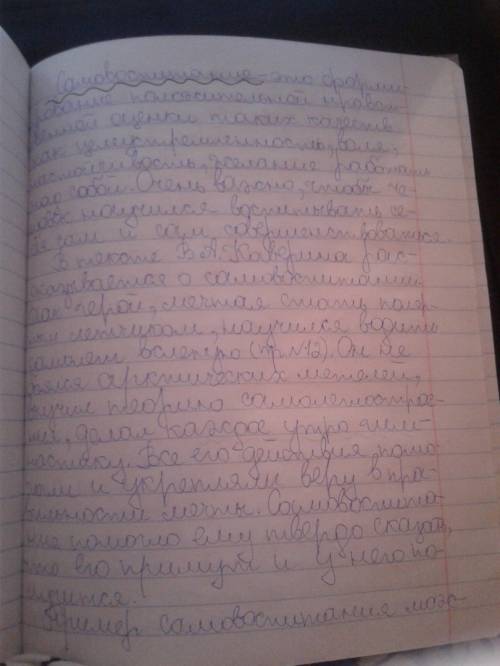 Самовоспитание - это форми-
рование положительной нравст-
венной оценки таких качеств
как целеустремленность, воля,
настойчивость, желание работать
над собой. Очень важно, чтобы че-
ловек научился воспитывать се-
бя сам и сам совершенствоваться.
В тексте В.А. Каверина рас-
сказывается о самовоспитании
как герой, мечтая стать поляр-
ным летчиком, научился водить
самолет вслепую (пр. №12). Он не
боялся арктических метелей,
изучил теорию самолетострое-
ния, делал каждое утро гим-
настику. Все его действия помо-
гали и укрепляли веру в пра-
вильность мечты. Самовоспита-
ние помогло ему твердо сказать,
что его примут и у него по-
лучится.
Пример самовоспитания мож-